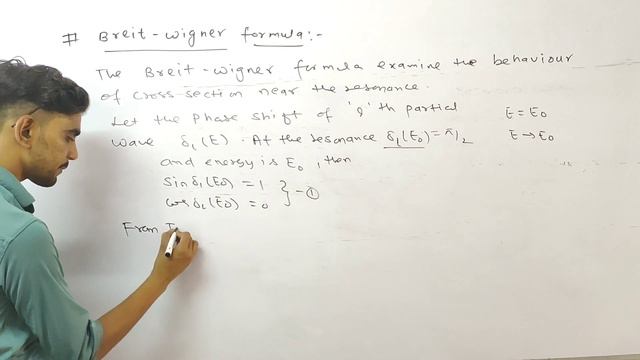 # Breit-wigner formula:-
The Breit-wigner formula examine the behaviour
of cross-section near the resonance.
Let the phase shift of 'l' th partial
wave δₗ(E). At the resonance δₗ(E₀)=π/2
and energy is E₀, then
sin δₗ(E₀) = 1
cos δₗ(E₀) = 0
} - ①
From
E = E₀
E → E₀